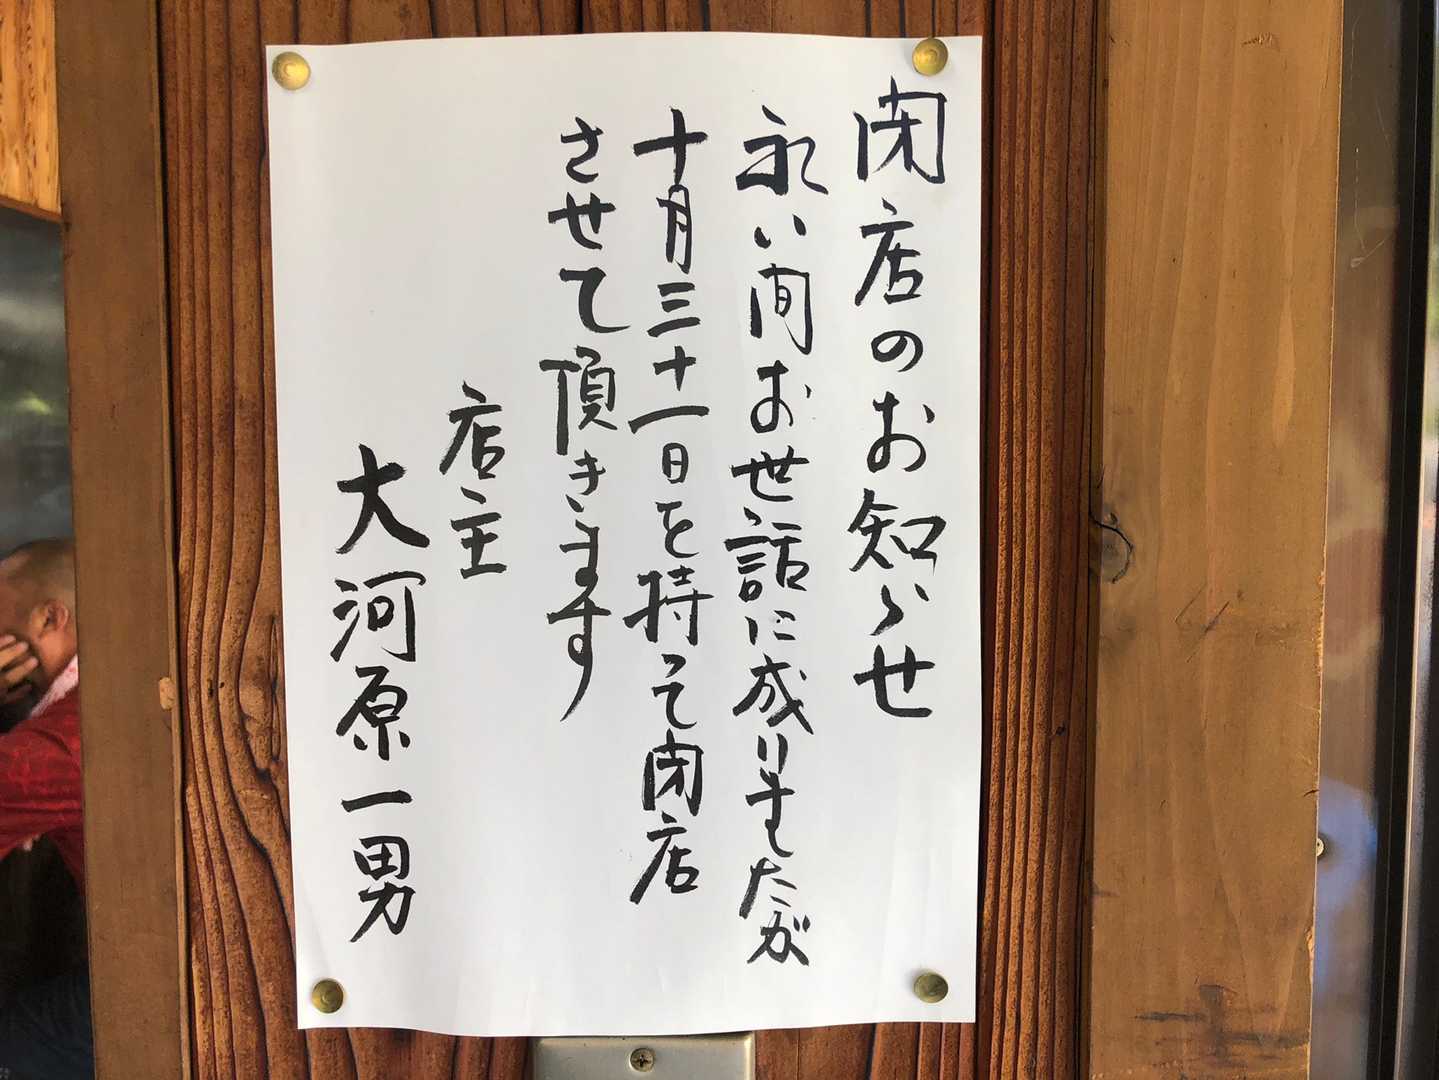 閉店のお知らせ
永い間お世話に成りましたが
十月三十一日を持って閉店
させて頂きます
店主
大河原一男